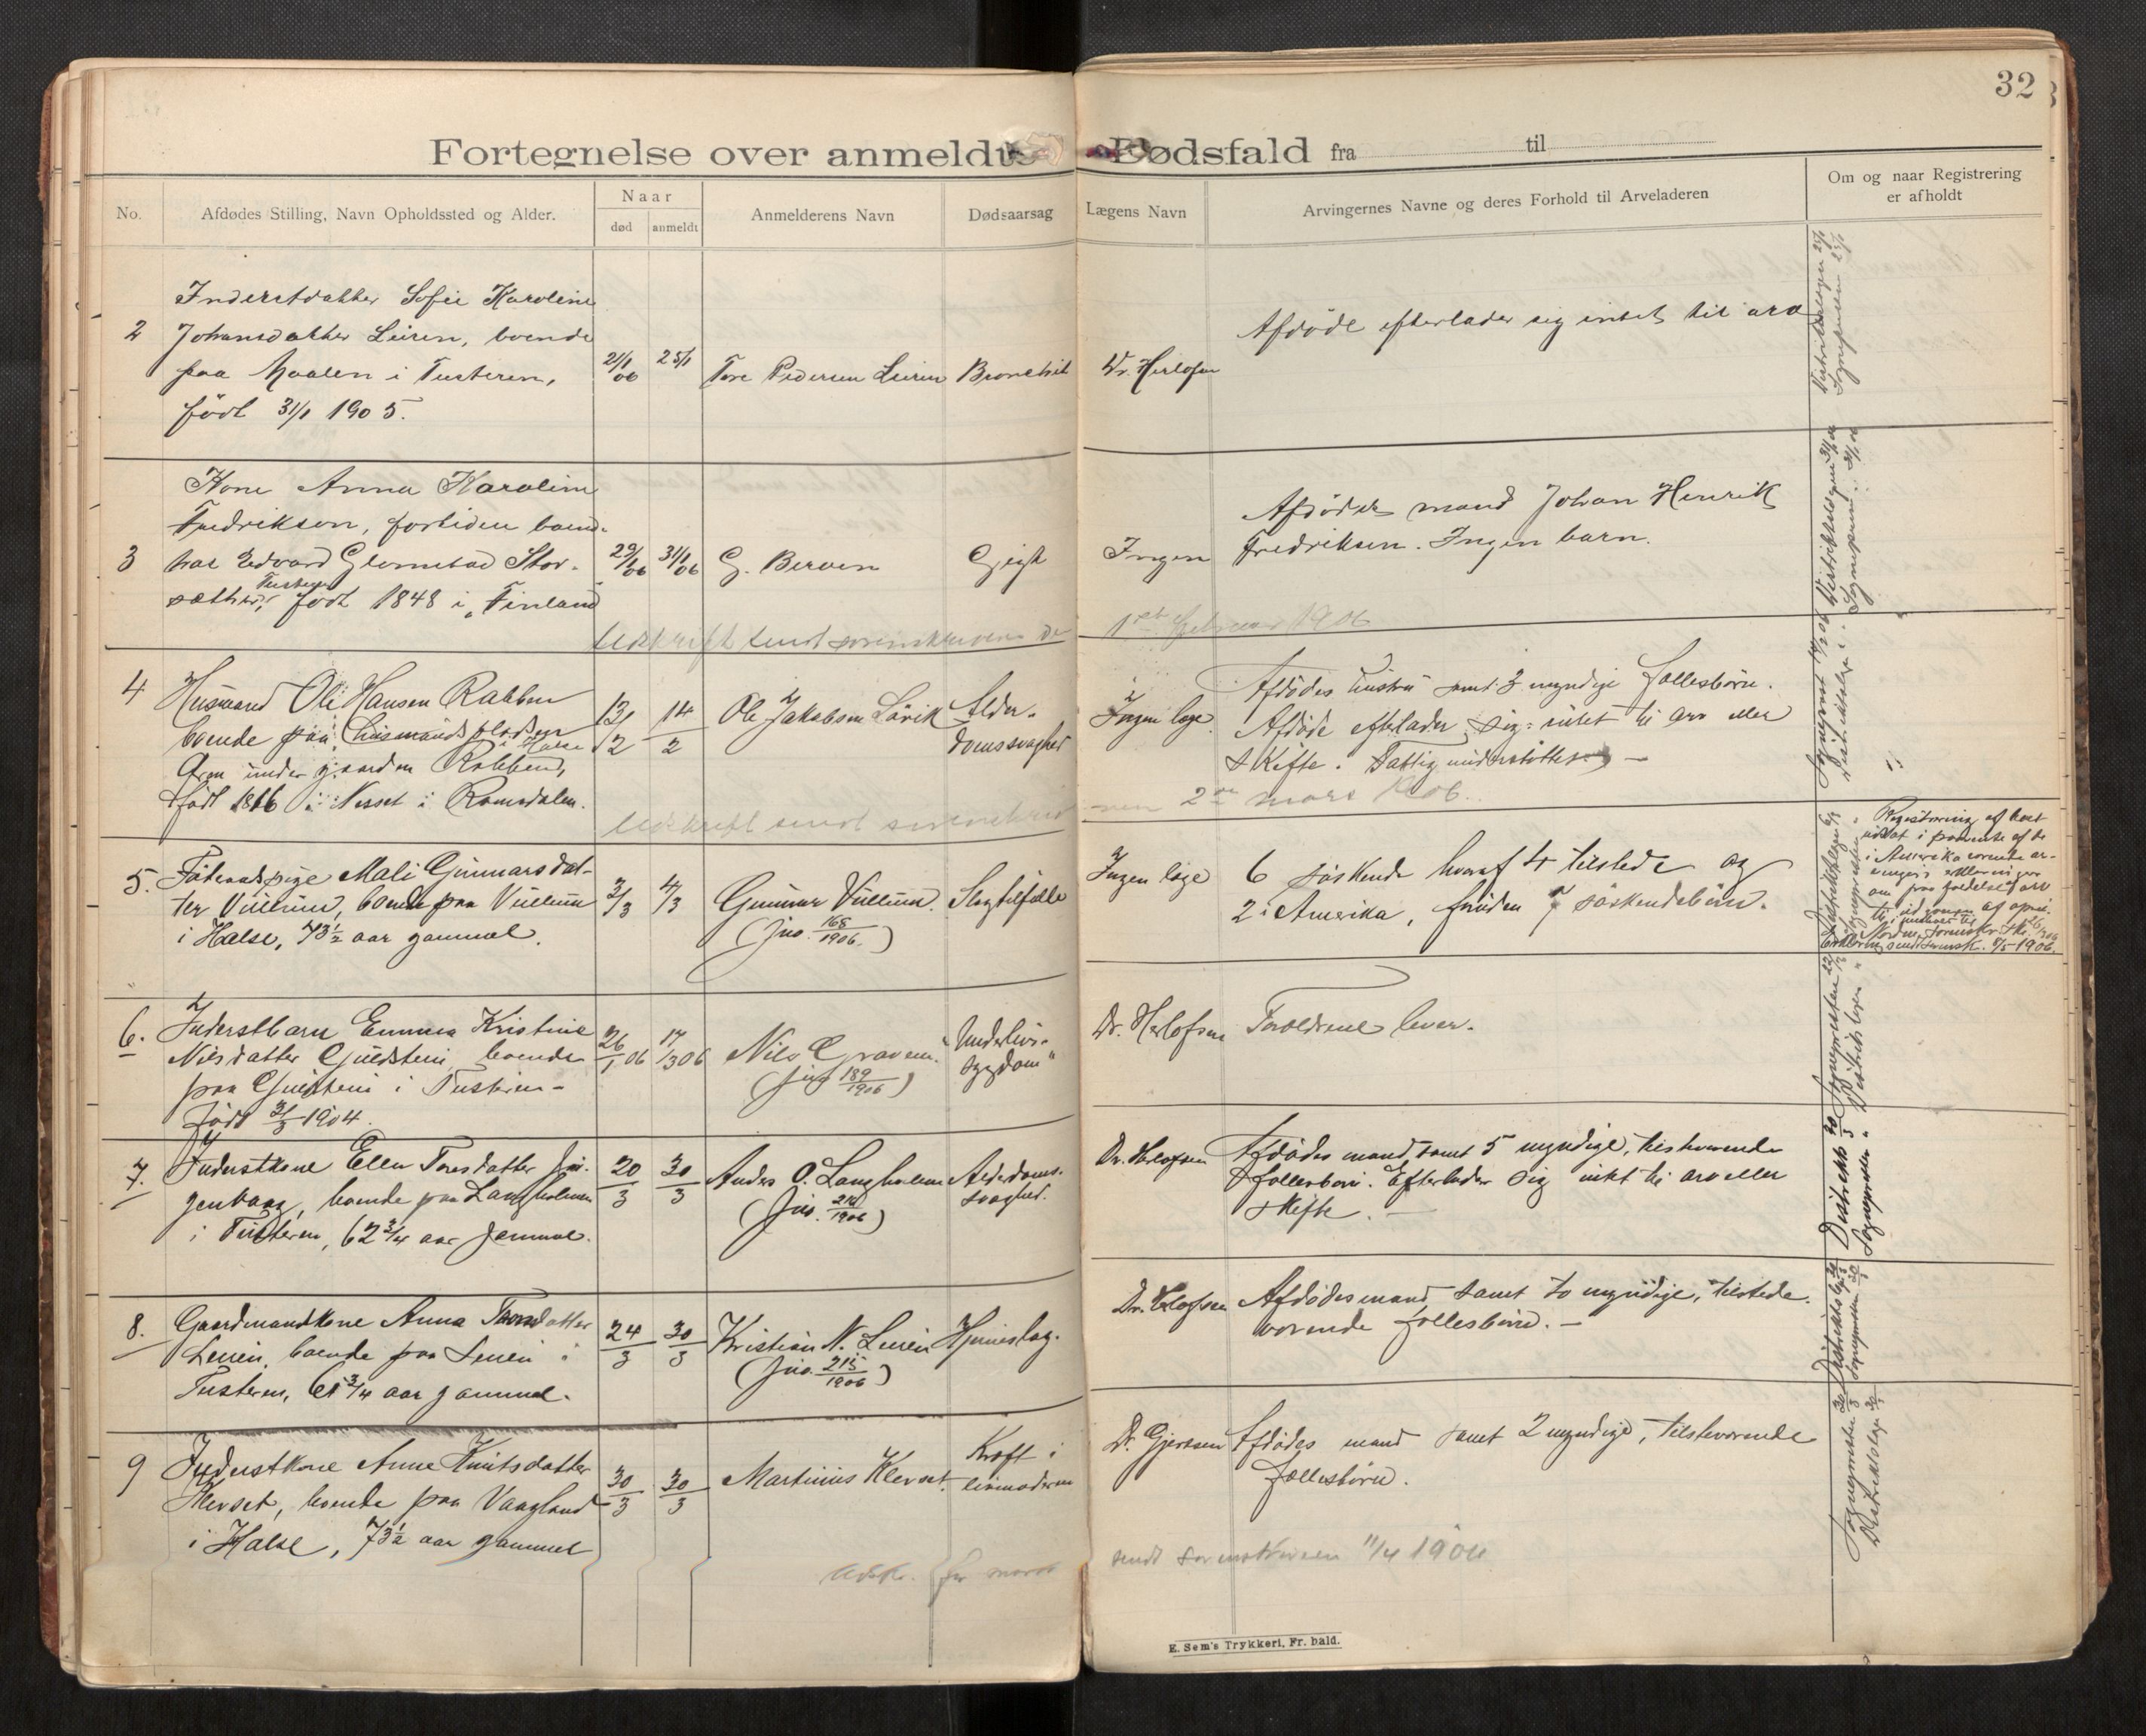 32
Fortegnelse over anmeldte Dødsfald fra til
No.
Afdødes Stilling, Navn Opholdssted og Alder.
Naar
død
anmeldt
Anmelderens Navn
Dødsaarsag
Lægens Navn
Arvingernes Navne og deres Forhold til Arveladeren
Om og naar Registrering
er afholdt
2
Inderstdatter Sofie Karoline
Johansdatter Leiren, boende
paa Aaalen i Tusteren,
født 31/1 1905.
21/1 06
25/1
Tore Pedersen Leiren
Bronchit
Dr. Herlofsen
Afdøde efterlader sig intet til arv
Distriktslægen 25/1
Sognepresten 25/1
3
Kone Anna Karoline
Fredriksen, fortiden boend-
hos Edvard Glomstad Stor-
sæther, Tusteren født 1848 i Finland
29/1 06
31/1 06
G. Berven
Gigt
Ingen
Afdødes mand Johan Henrik
Fredriksen. Ingen barn.
Distriktslægen 31/1 06
Sognepresten 31/1 06
Udskrift sendt sorenskriveren de 1ste februar 1906
4
Husmand Ole Hansen Rabben
boende paa husmandspladsen
Øren under gaarden Rabben, i Halse
født 1816 i Nesset i Romsdalen.
13/2
14/2
Ole Jakobsen Lårik
Alder-
domssvaghed
Ingen læge
Afdødes hustru samt 3 myndige fællesbörn.
Afdøde efterlader sig intet til arv eller
skifte. Fattigunderstøttes. —
Udskrift sendt sorenskriveren 2den mars 1906.
5.
Føderaadspige Mali Gunnarsdat-
ter Vullum, boende paa Vullum
i Halse, 73½ aar gammel.
3/3
4/3
Gunnar Vullum.
(Jno. 168/1906.)
Slagtilfælde
Ingen læge
6 søskende hvoraf 4 tilstede og
2 i Amerika, foruden 7 søskendebørn.
Registrering af boet
i Amerika
sendt sorensk. 1906.
6.
Inderstbarn Emma Kristine
Nilsdatter Guldstein, boende
paa Guldstein i Tusteren -
født 3/3 1904.
26/1 06
17/3 06
Nils Graven.
(jno 189/1906)
"Underlivs-
sygdom"
Dr. Herlofsen
Forældrene lever.
7.
Inderstkone Ellen Toresdatter Jør-
genvaag, boende paa Langholmen
i Tusteren, 62¾ aar gammel.
20/3
30/3
Anders O. Langholmen
(Jno. 214/1906)
Alderdoms-
svaghed.
Dr. Herlofsen
Afdødes mand, samt 5 myndige, tilstevørende
fællesbörn. Efterlader sig intet til arv eller
skifte. —
8.
Gaardmandkone Anna Thoresdatter
Leiren, boende paa Leiren i
Tusteren, 61¾ aar gammel.
24/3
30/3
Kristian N. Leiren
(Jno. 215/1906)
Hjerneslag.
Dr. Herlofsen
Afdødes mand samt to myndige, tilstede-
værende fællesbörn. —
9
Inderstkone Anne Knutsdatter
Klevset, boende paa Vaagland
i Halse, 73½ aar gammel
30/3
30/3
Martinus Klevset.
Kræft i
livmoderen
Dr. Gjersen
Afdødes mand samt 2 myndige, tilsteværende
fællesbörn.
Udskr. for mars sendt sorenskriveren 11/4 1906
E. Sem's Trykkeri, Fr. hald.